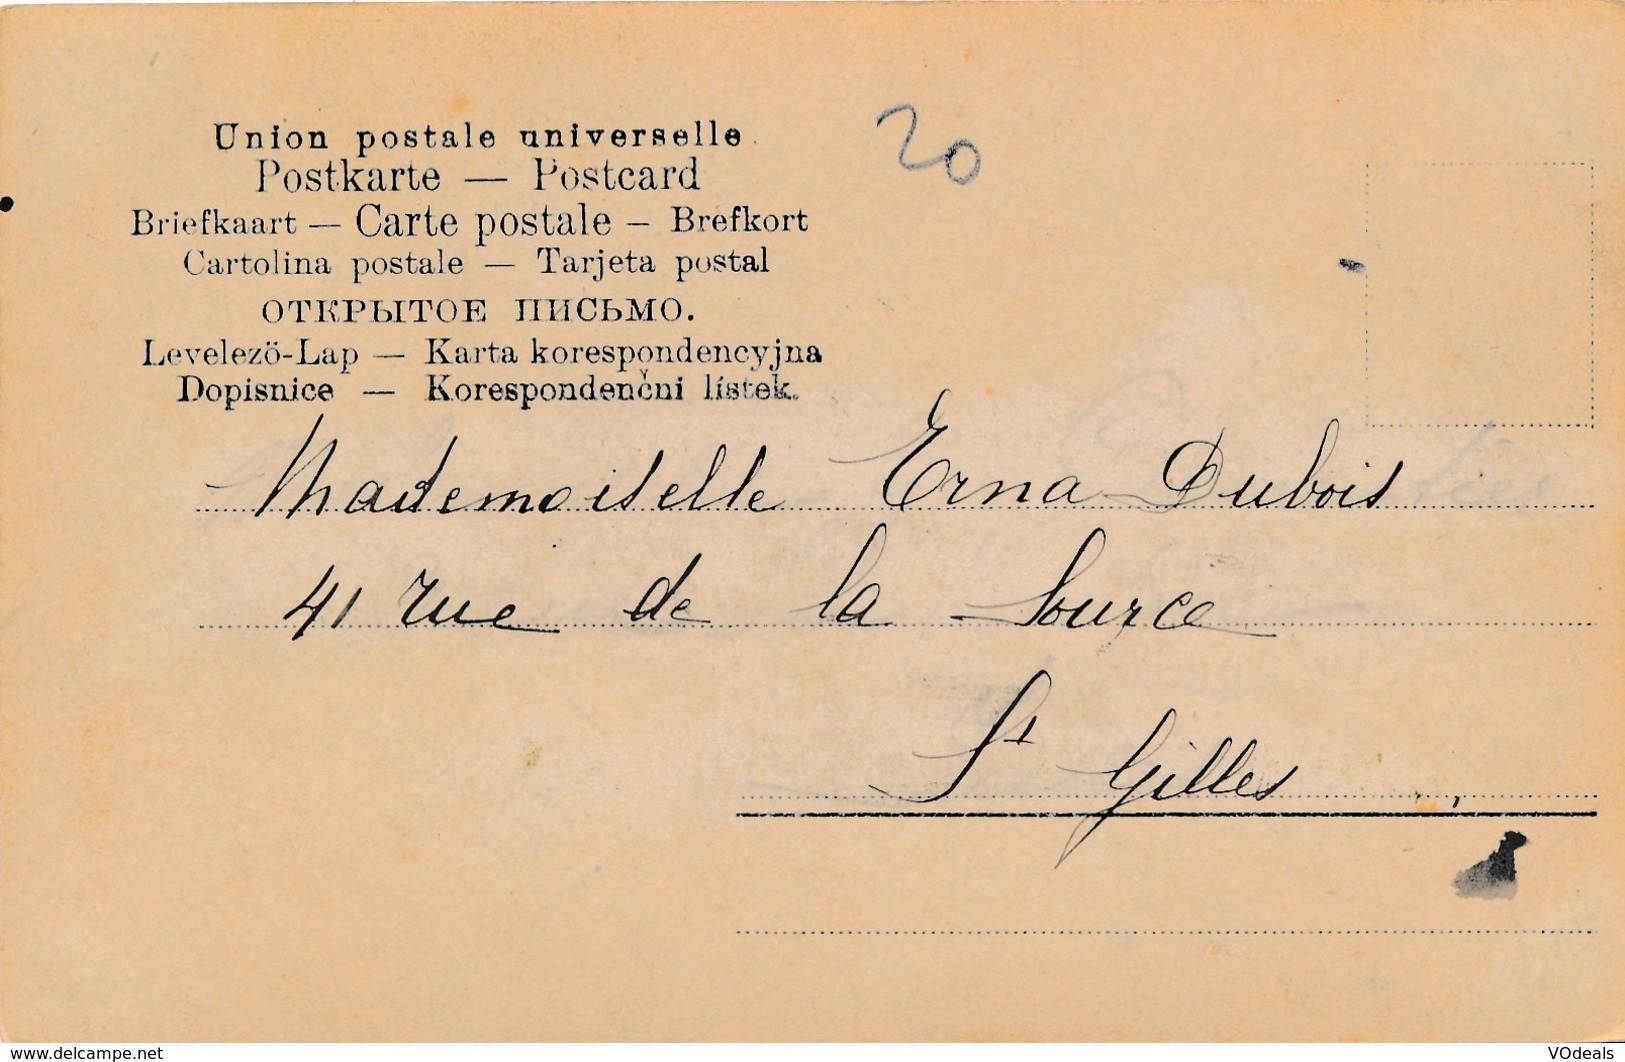 Union postale universelle
20
Postkarte — Postcard
Briefkaart — Carte postale — Brefkort
Cartolina postale — Tarjeta postal
ОТКРЫТОЕ ПИСЬМО.
Levelezö-Lap — Karta korespondencyjna
Dopisnice — Korespondenční lístek.
Mademoiselle Erna Dubois
41 rue de la Source
St Gilles
www.delcampe.net
VOdeals